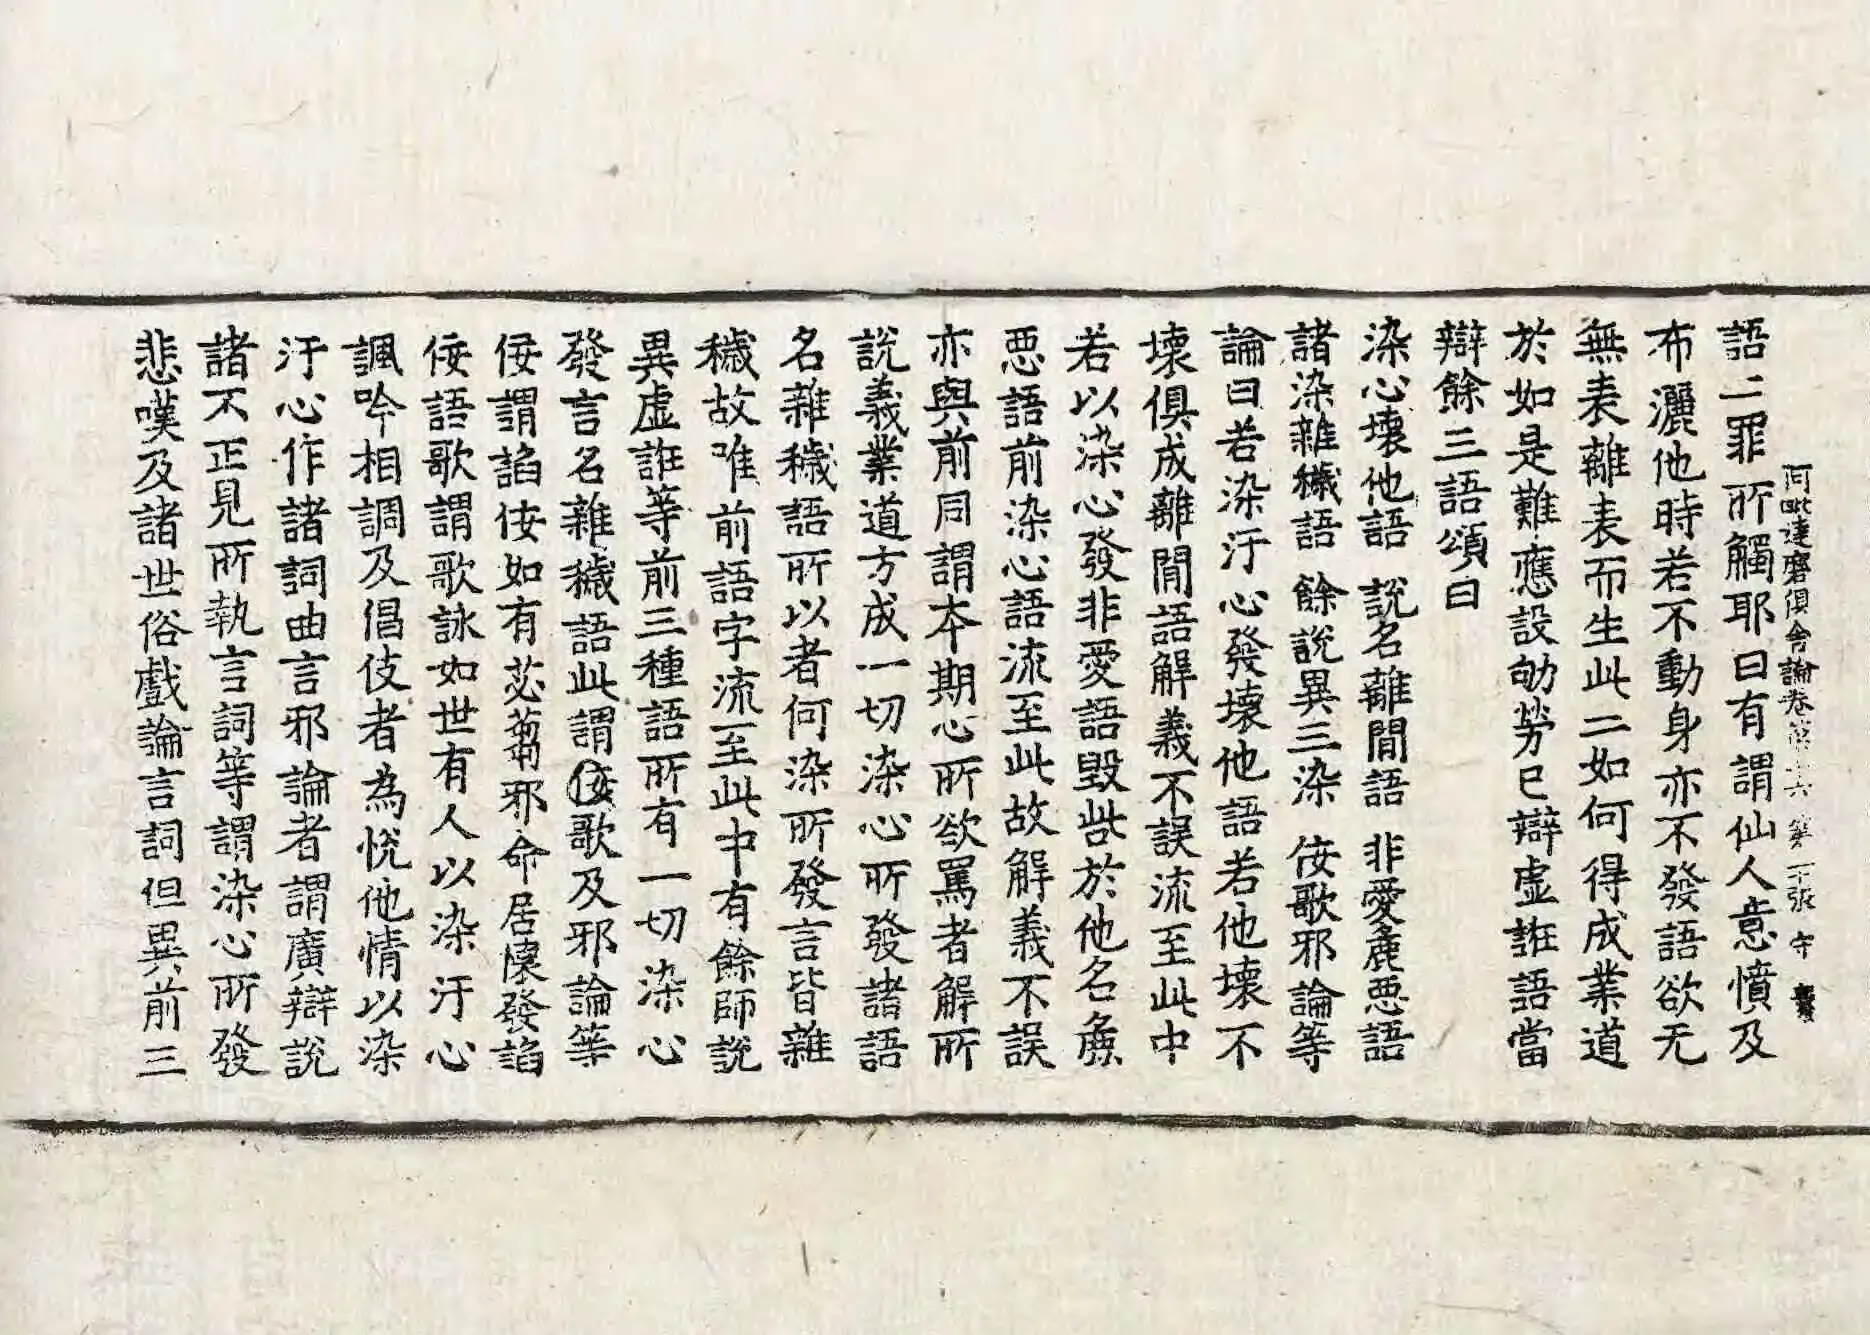 阿毗達磨俱舍論卷第十六 第二十張 守
語二罪所觸耶曰有謂仙人意憤及
布灑他時若不動身亦不發語欲无
無表離表而生此二如何得成業道
於如是難應設劬勞已辯虛誑語當
辯餘三語頌曰
染心壞他語 說名離間語 非愛麁惡語
諸染雜穢語 餘說異三染 佞歌邪論等
論曰若染汙心發壞他語若他壞不
壞俱成離間語解義不誤流至此中
若以染心發非愛語毀呰於他名麁
惡語前染心語流至此故解義不誤
亦與前同謂本期心所欲罵者解所
說義業道方成一切染心所發諸語
名雜穢語所以者何染所發言皆雜
穢故唯前語字流至此中有餘師說
異虛誑等前三種語所有一切染心
發言名雜穢語此謂佞歌及邪論等
佞謂諂佞如有苾蒭邪命居懷發諂
佞語歌謂歌詠如世有人以染汙心
諷吟相調及倡伎者為悅他情以染
汙心作諸詞曲言邪論者謂廣辯說
諸不正見所執言詞等謂染心所發
悲嘆及諸世俗戲論言詞但異前三